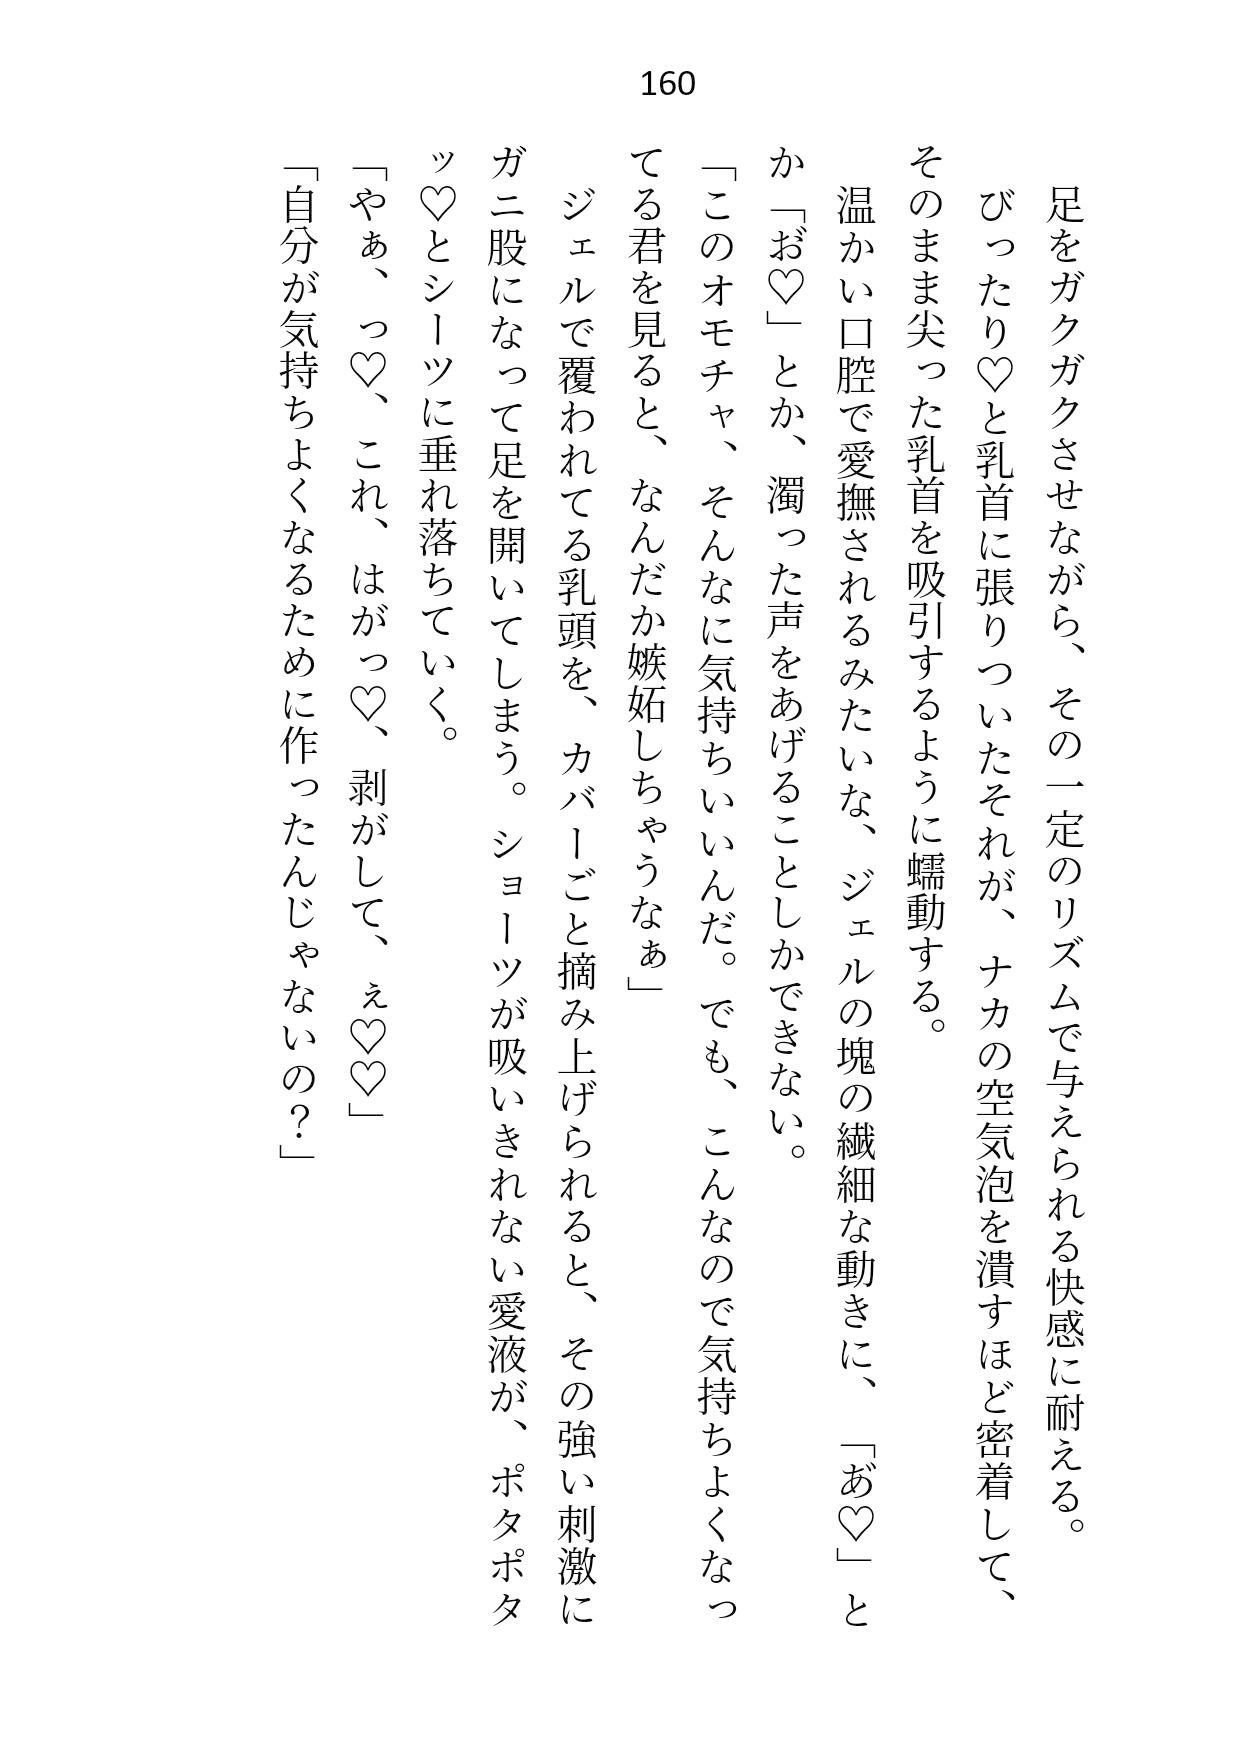 160
足をガクガクさせながら、その一定のリズムで与えられる快感に耐える。
びったり♡と乳首に張りついたそれが、ナカの空気泡を潰すほど密着して、
そのまま尖った乳首を吸引するように蠕動する。
温かい口腔で愛撫されるみたいな、ジェルの塊の繊細な動きに、「あ゙♡」と
か「お゙♡」とか、濁った声をあげることしかできない。
「このオモチャ、そんなに気持ちいいんだ。でも、こんなので気持ちよくなっ
てる君を見ると、なんだか嫉妬しちゃうなぁ」
ジェルで覆われてる乳頭を、カバーごと摘み上げられると、その強い刺激に
ガニ股になって足を開いてしまう。ショーツが吸いきれない愛液が、ポタポタ
ッ♡とシーツに垂れ落ちていく。
「やぁ、っ♡、これ、はがっ♡、剥がして、ぇ♡♡」
「自分が気持ちよくなるために作ったんじゃないの？」